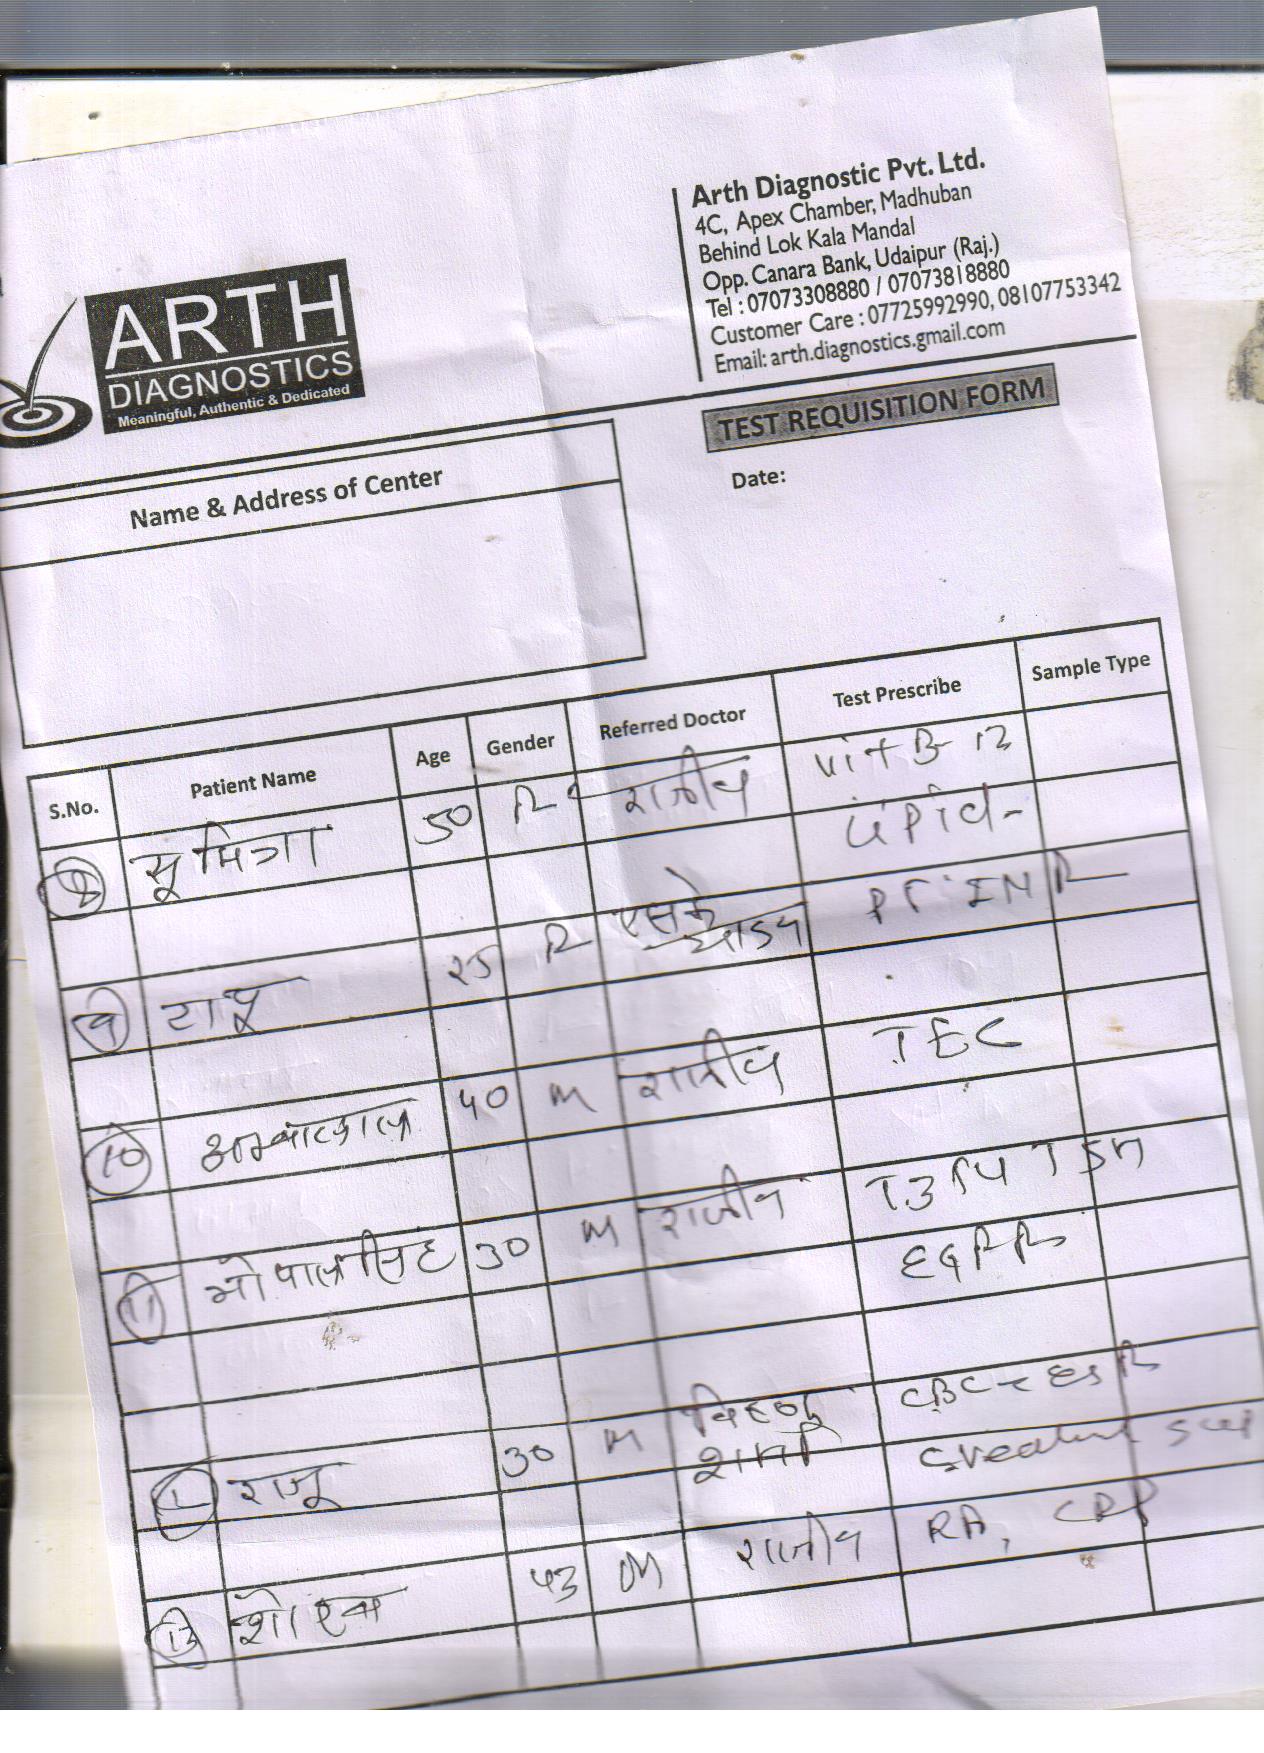 Arth Diagnostic Pvt. Ltd.
4C, Apex Chamber, Madhuban
Behind Lok Kala Mandal
Opp. Canara Bank, Udaipur (Raj.)
Tel : 07073308880 / 07073818880
Customer Care : 07725992990, 08107753342
Email: arth.diagnostics.gmail.com
ARTH
DIAGNOSTICS
Meaningful, Authentic & Dedicated
TEST REQUISITION FORM
Name & Address of Center
Date:
S.No. Patient Name Age Gender Referred Doctor Test Prescribe Sample Type
सूमित्रा 50 राजीव Vit B 12
Lipid
25 एसके PT INR
10 अम्बालाल 40 M राजीव TEC
11 गोपालसिंह 30 M राजीव T3 T4 TSH
30 M विष्णु CBC ESR
राजू शर्मा
13 43 M राजीव RA, CRP